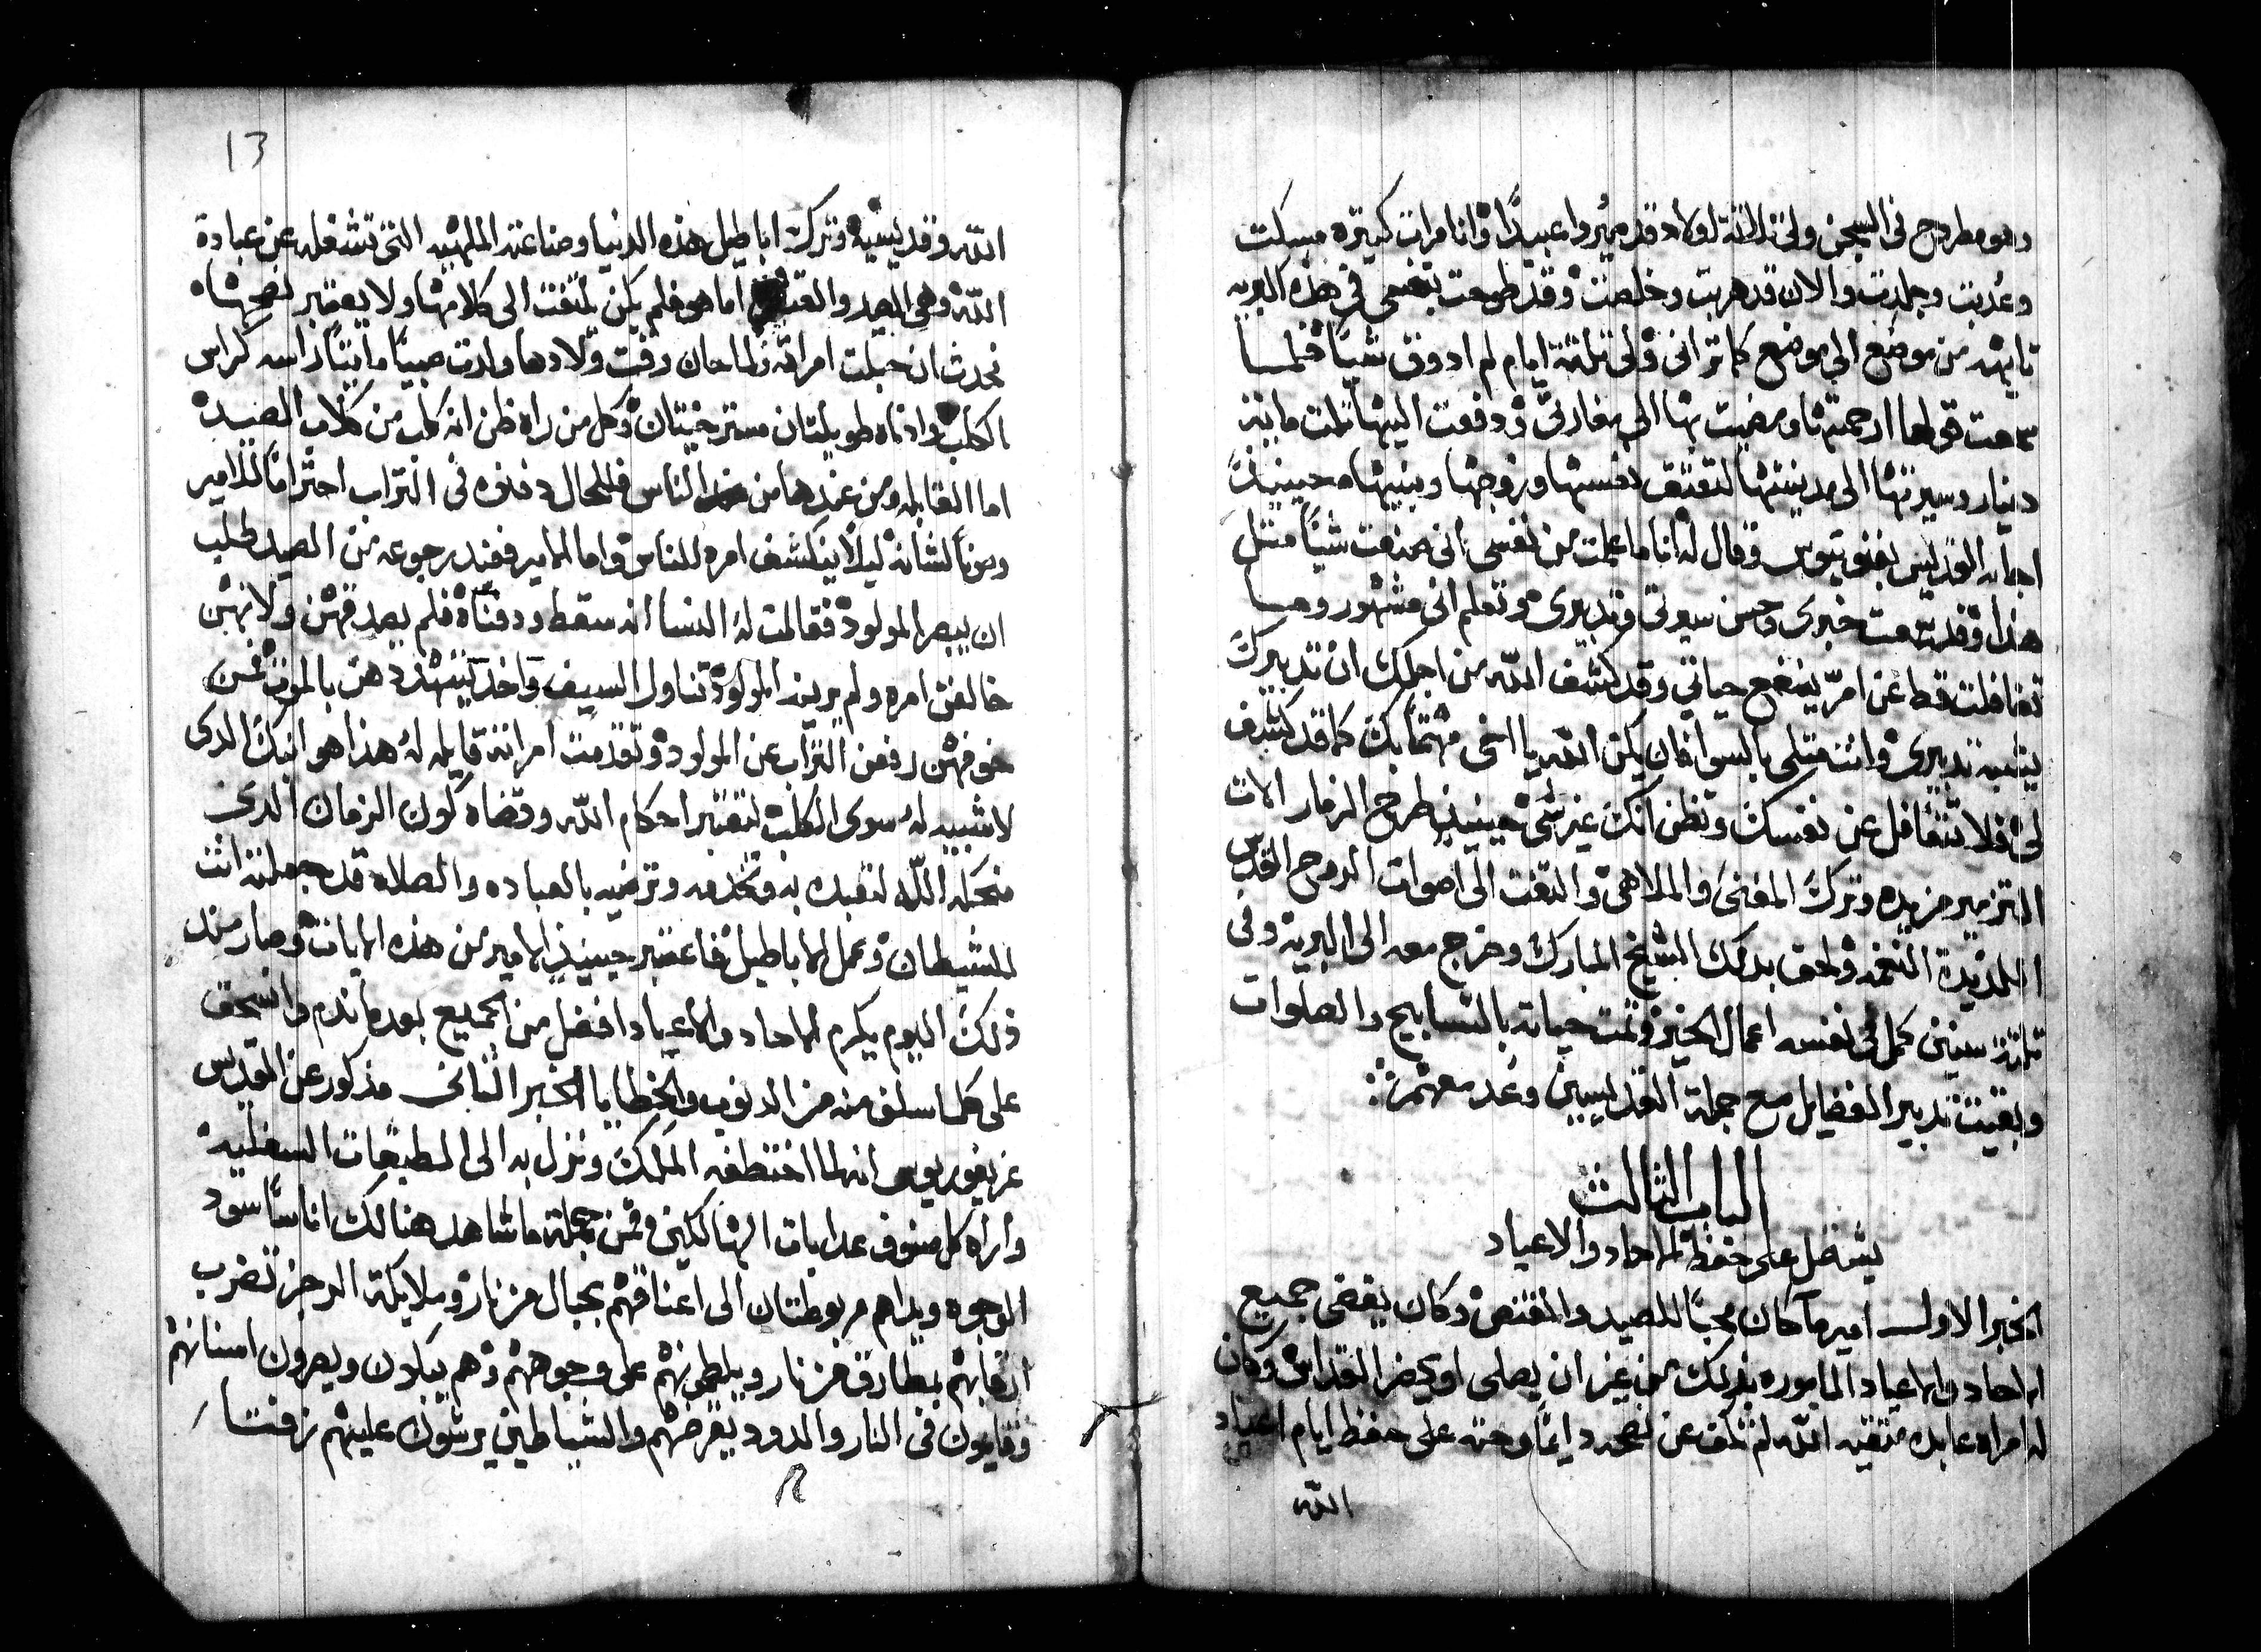 وهو مطروح فى السجن ولى تلاتة اولاد قد صيروا عبيدًا وانا مرات كتيره مسكت
وعُدبت وجلدت والان قد هربت وخلصت وقد طوحت بنفسى فى هذه البريه
تايهه من موضع الى موضع كما ترانى ولى تلتة ايام لم ادوق شياً فلما
سمعت قولها ارحمتها ومضيت بها الى مغارتى ودفعت اليها تلت ماية
دينار وسيرتها الى مدينتها لتعتق نفسها وزوجها وبنيها حينيذ
اجابه القديس بفنوتيوس وقال له انا ما علمت من نفسى انى صنعت شياً متل
هذا وقد سمعت خبرى وحسن سيرتى وتدبيرى وتعلم انى مشهور وما
تغافلت قط عن امرٍ ينفع حياتى وقد كشف الله من اجلك ان تدبيرك
يشبه تدبيرى وانت متلى بالسوا فان يكن الله يا اخى مهتمًا بك كما قد كشف
لى فلا تتغافل عن نفسك وتظن انك غير شى حينيذ طرح الزمار الات
التزمير من يده وترك المغنى والملاهى والتفت الى اصوات الروح القدس
اللذيذة النغمه ولحق بدلك الشيخ المبارك وخرج معه الى البريه وفى
تلتة سنين كمل فى نفسه اعمال الخير وتمت حياته بالتسابيح والصلوات
وبقيت تدبير الفضايل مع جملة القديسين وعُد معهم
الباب الثالث
يشتمل على حفظ الاحاد والاعياد
الخبر الاول امير ما كان محبًا للصيد والقنص وكان يقضى جميع
الاحاد والاعياد المامورة بذلك من غير ان يصلى او يحضر القداس وكان
له امراه عابده متقيه الله لم تكف عن نصحه دايمًا وحته على حفظ ايام اعياد
الله
13
الله وقديسيه وترك اباطيل هذه الدنيا وصناعته الملهيه التى تشغله عن عبادة
الله وهى الصيد والقنص اما هو فلم يكن يلتفت الى كلامها ولا يعتبر نصحها
فحدث ان حبلت امراته ولما حان وقت ولادها ولدت صبيًا مايتًا راسه كراس
الكلب واذناه طويلتان مسترخيتان وكل من راه ظن انه كلب من كلاب الصيد
اما القابله ومن عندها من الناس فللحال دفنوه فى التراب احترامًا للامير
وصونًا لشانه ليلا ينكشف امره للناس واما الامير فعند رجوعه من الصيد طلب
ان يبصر المولود فقالت له النسا انه سقط ودفناه فلم يصدقهن ولانهن
خالفن امره ولم يرينه المولود تناول السيف واخذ يتهددهن بالموت فمن
خوفهن رفعن التراب عن المولود وتقدمت امراته قايله له هذا هو ابنك الدى
لا شبيه له سوى الكلب لتعتبر احكام الله وقضاه كون الزمان الدى
منحكه الله لتعبده به وتخدمه وترضيه بالعباده والصلاه قد جعلته انت
للشيطان وعمل الاباطيل فاعتبر حينيذ الامير من هذه الايات وصار مند
ذلك اليوم يكرم الاحاد والاعياد افضل من الجميع بعده ندم وانسحق
على كلما سلف منه من الدنوب والخطايا الخبر التانى مذكور عن القديس
غريغوريوس انه لما اختطفه الملاك ونزل به الى الطبقات السفليه
واراه كل صنوف عدابات الهالكين فمن جملة ما شاهد هنالك اناسًا سود
الوجوه ويداهم مربوطتان الى اعناقهم بحبال من نار وملايكة الرجز تضرب
ارقابهم بمطارق من نار ويلطمونهم على وجوههم وهم يبكون ويصرون اسنانهم
وقايمون فى النار والدود يقرضهم والشياطين يرشون عليهم زفتا